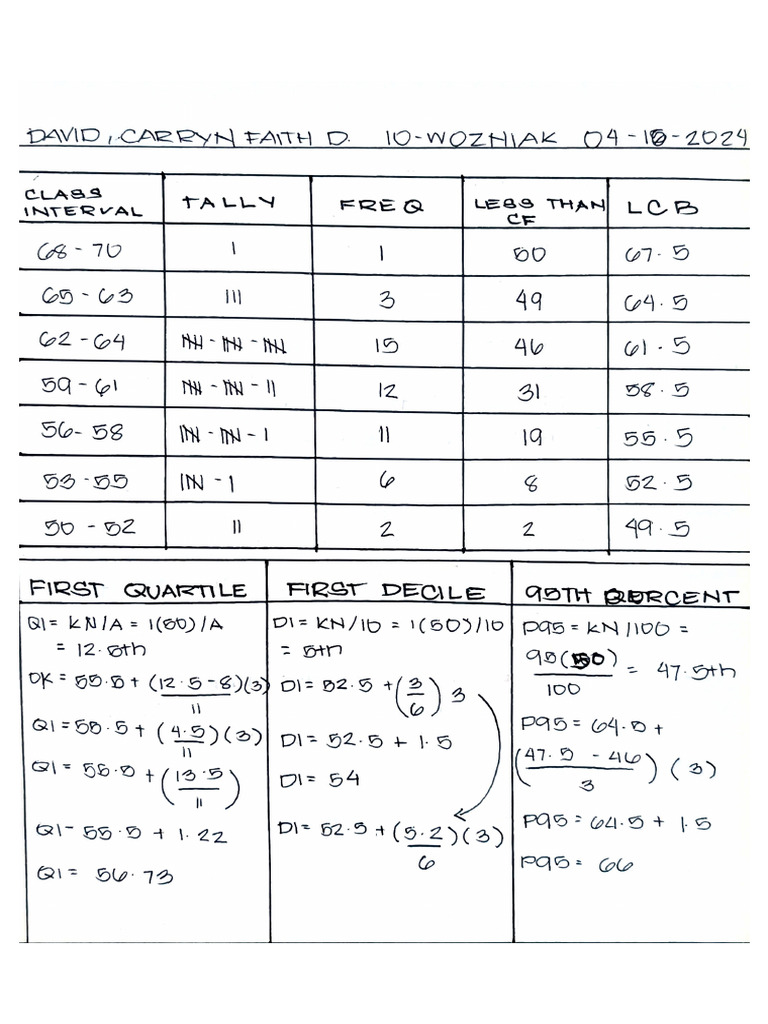 DAVID, CARRYN FAITH D. 10-WOZNIAK 04-18-2024
CLASS INTERVAL TALLY FREQ LESS THAN CF LCB
68 - 70 I 1 50 67.5
65 - 63 III 3 49 64.5
62 - 64 IIII - IIII - IIII 15 46 61.5
59 - 61 IIII - IIII - II 12 31 58.5
56 - 58 IIII - IIII - I 11 19 55.5
53 - 55 IIII - I 6 8 52.5
50 - 52 II 2 2 49.5
FIRST QUARTILE
Q1 = KN/A = 1(50)/A
= 12.5th
QK = 55.5 + (12.5 - 8)(3)
11
Q1 = 55.5 + (4.5)(3)
11
Q1 = 55.5 + (13.5)
11
Q1 = 55.5 + 1.22
Q1 = 56.73
FIRST DECILE
D1 = KN/10 = 1(50)/10
= 5th
D1 = 52.5 + (3/6) 3
D1 = 52.5 + 1.5
D1 = 54
D1 = 52.5 + (5.2)(3)
6
95TH PERCENT
P95 = KN/100 =
95(50)
100
= 47.5th
P95 = 64.5 +
(47.5 - 46) (3)
3
P95 = 64.5 + 1.5
P95 = 66